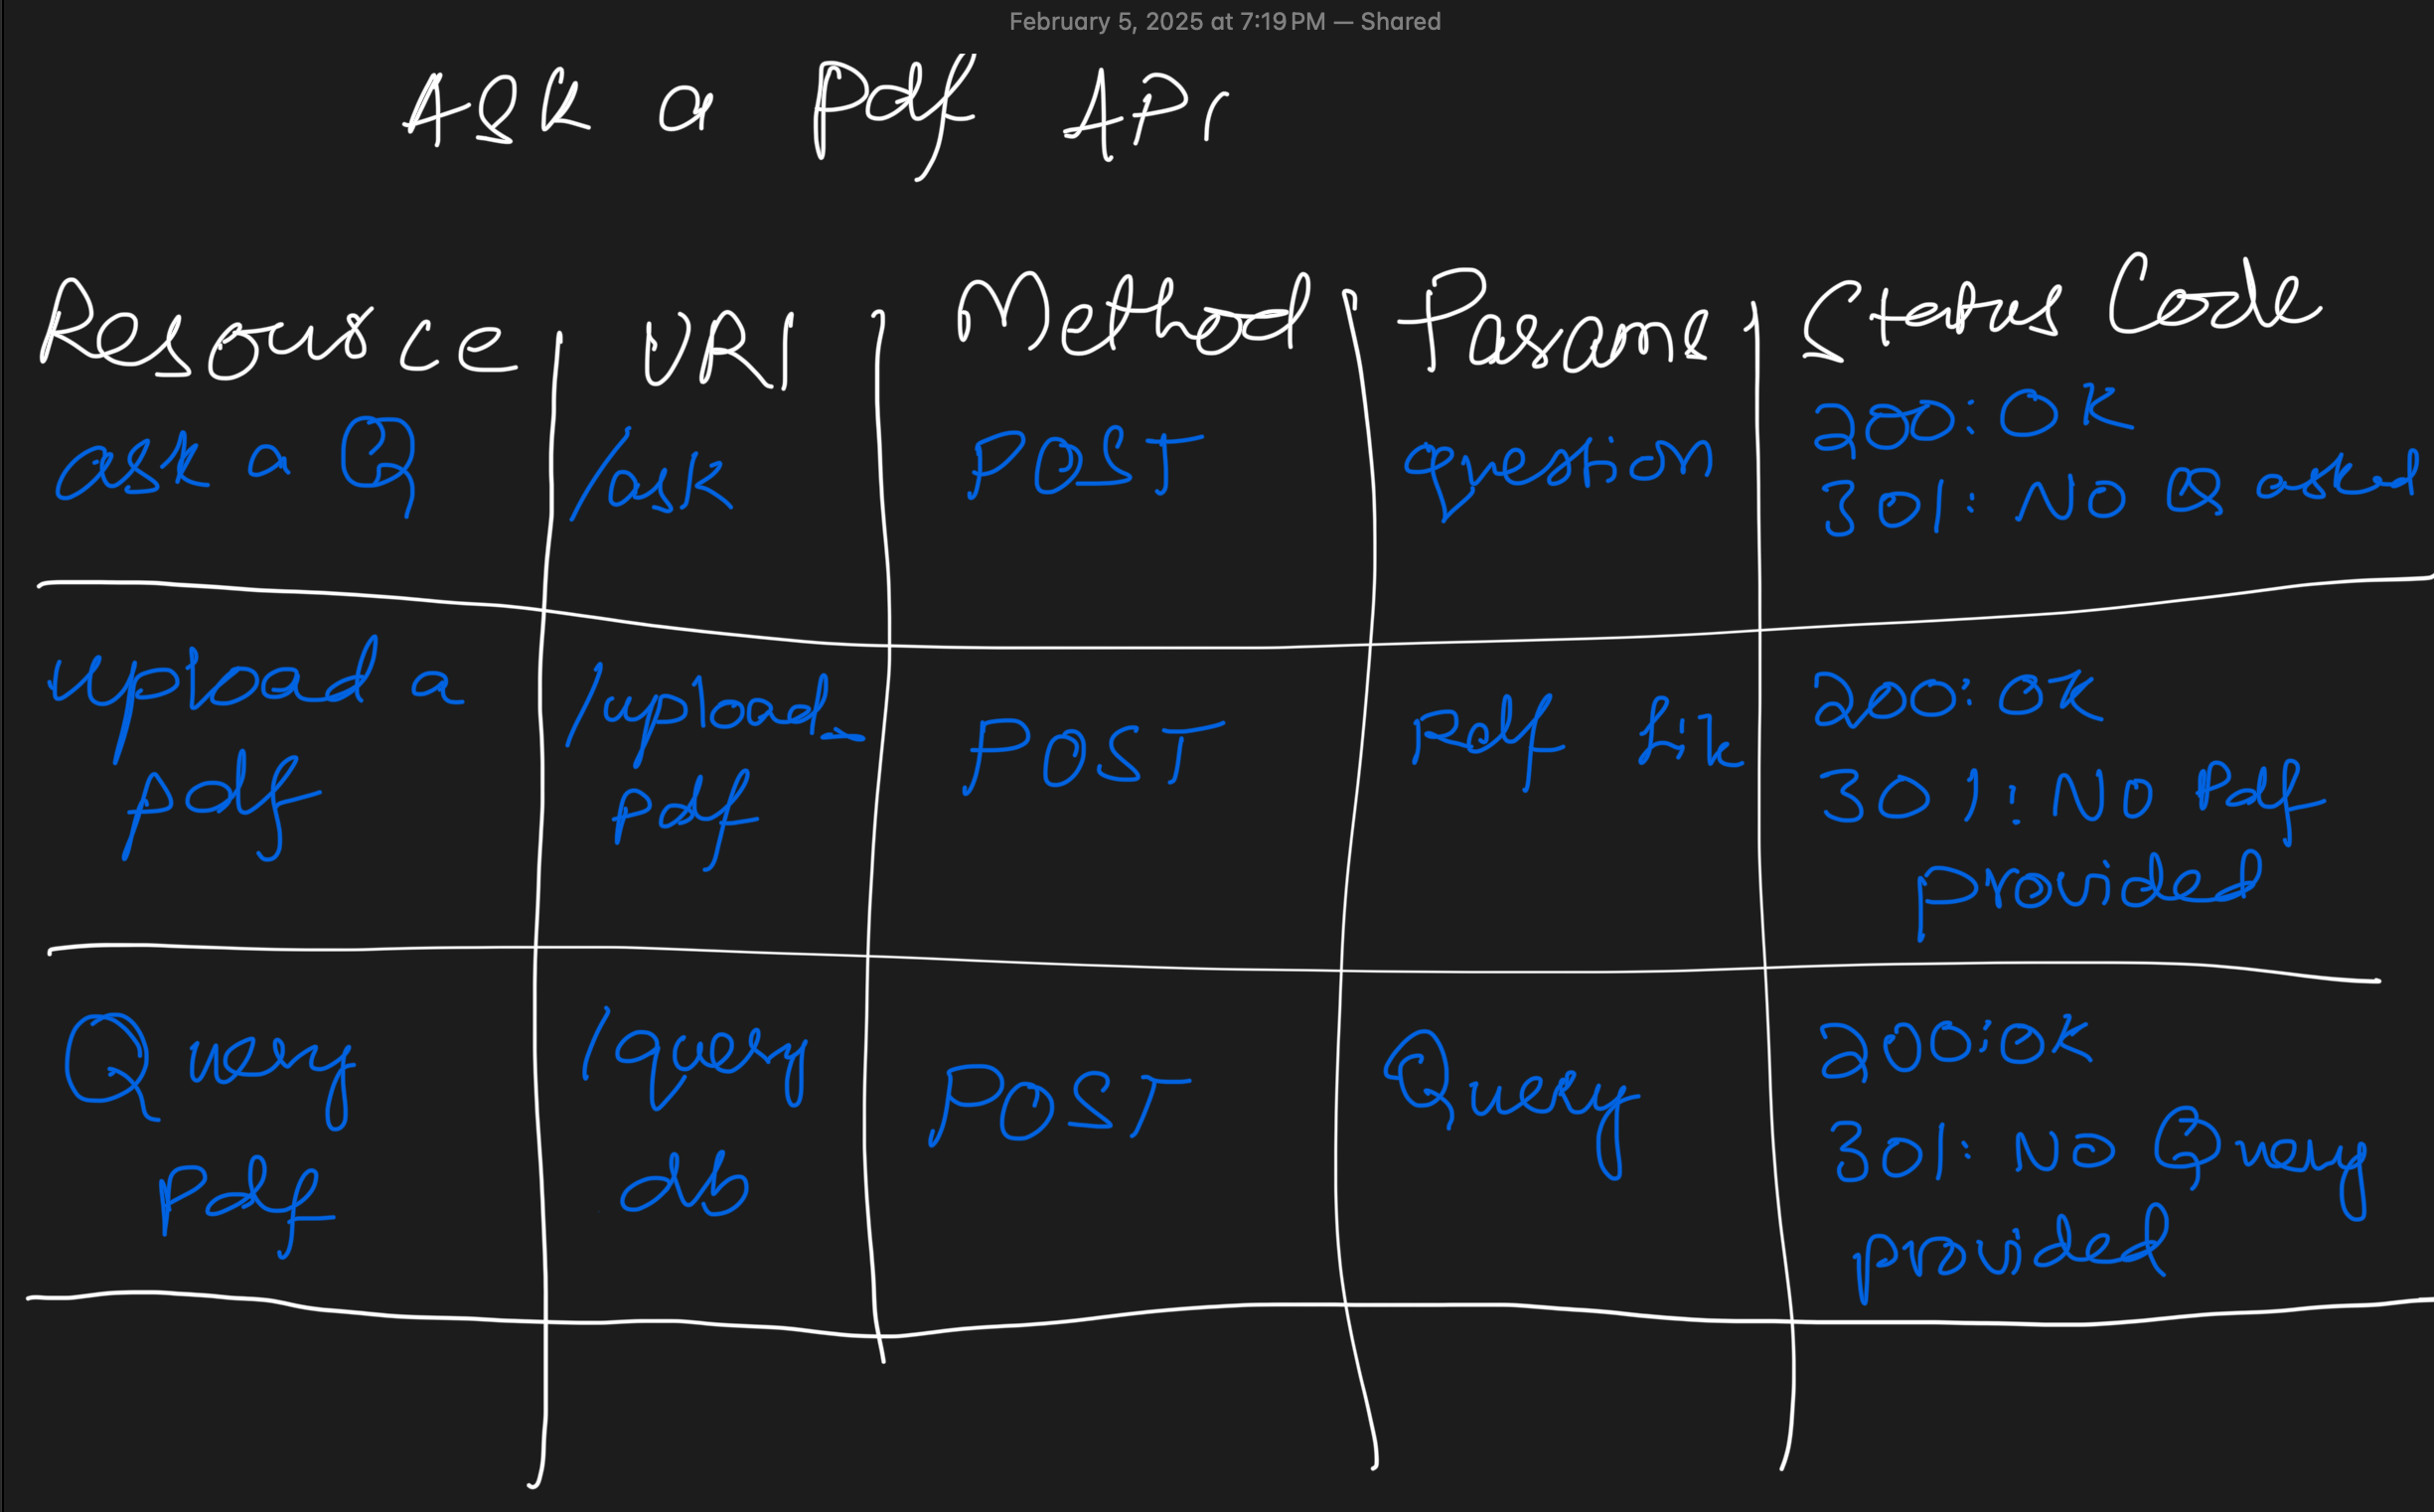 February 5, 2025 at 7:19 PM — Shared
Ask a Pdf API
Resource URI Method Params Status Code
ask a Q /ask POST question 200: OK
301: No Q asked
upload a /upload_ POST Pdf file 200: OK
pdf pdf 301: No Pdf
provided
Query /query POST Query 200: OK
Pdf db 301: No Query
provided